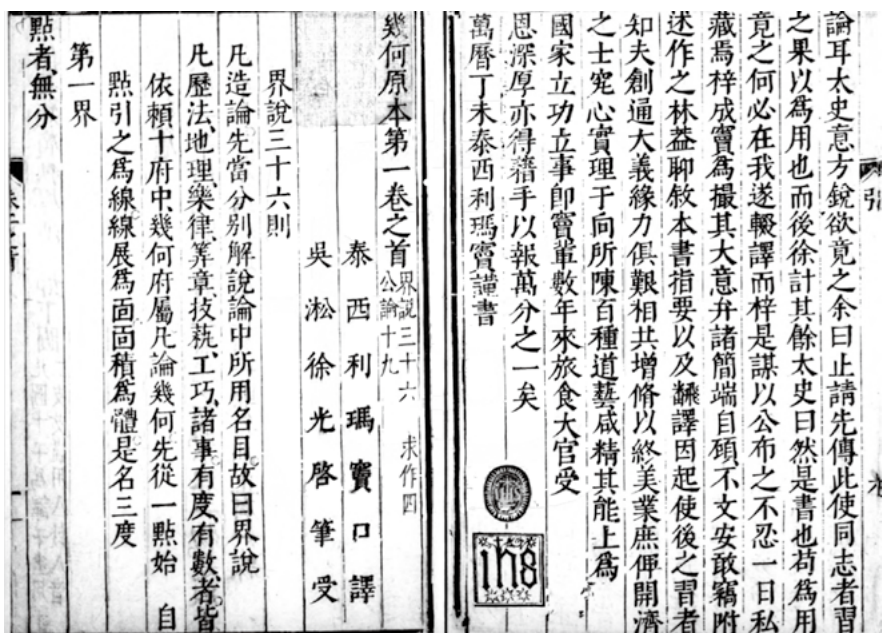 論耳太史意方銳欲竟之余曰止請先傳此使同志者習
之果以為用也而後徐計其餘太史曰然是書也苟為用
竟之何必在我遂輟譯而梓是謀以公布之不忍一日私
藏焉梓成竇為撮其大意弁諸簡端自顧不文安敢竊附
述作之林葢聊敘本書指要以及繙譯因起使後之習者
知夫創通大義緣力俱艱相共增修以終美業庶俾開濟
之士究心實理于向所陳百種道藝咸精其能上為
國家立功立事即竇輩數年來旅食大官受
恩深厚亦得藉手以報萬分之一矣
萬曆丁未泰西利瑪竇謹書
ihs
幾何原本第一卷之首 界說三十六 求作四
公論十九
泰西利瑪竇口譯
吳淞徐光啓筆受
界說三十六則
凡造論先當分別解說論中所用名目故曰界說
凡歷法、地理、樂律、筭章、技藝、工巧、諸事有度、有數者、皆
依賴十府中、幾何府屬凡論幾何先從一點始 自
點引之為線線展為面面積為體是名三度
第一界
點者、無分